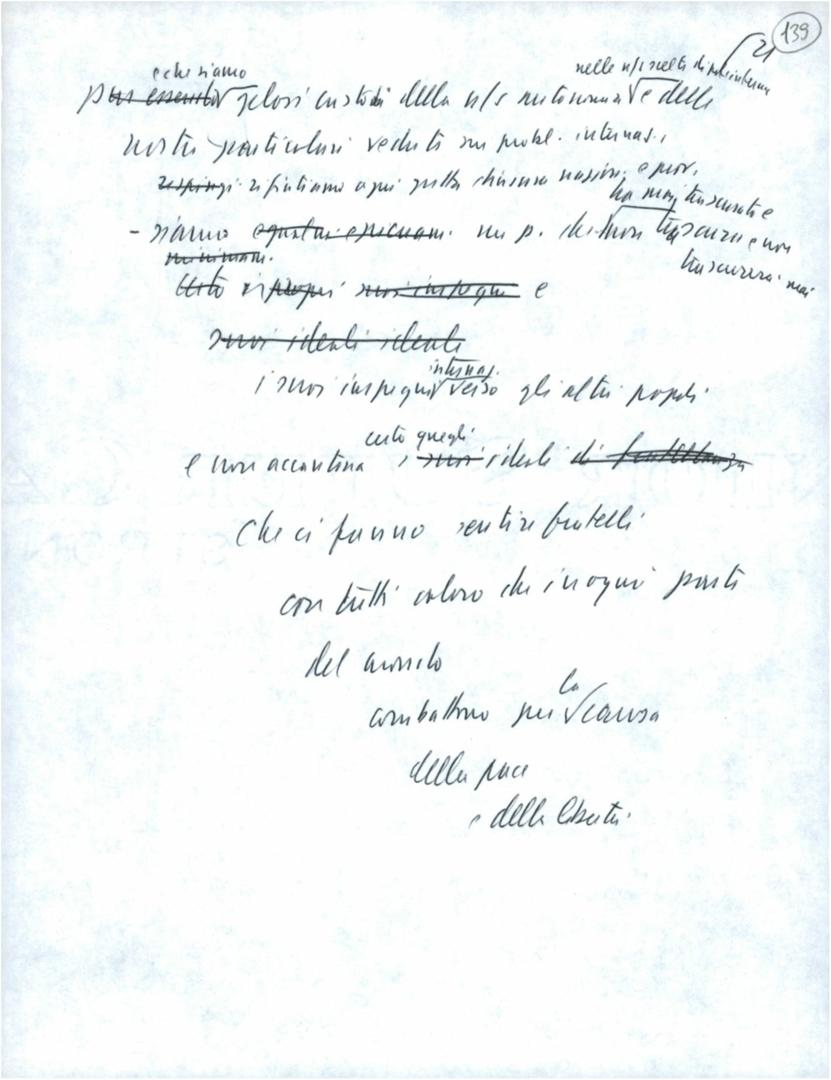 139
21
e che siamo
nelle n/s scelte di pol. interna
pur essendo gelosi custodi della n/s autonomia e delle
nostre particolari vedute su probl. internaz.,
respingi rifiutiamo ogni gretta chiusura nazion. e prov.
ha mai trascurato e
- siamo un p. che non trascura e non
trascurerà mai
e
suoi ideali ideali
internaz.
i suoi impegni verso gli altri popoli
certo quegli
e non accantona i suoi ideali di fratellanza
che ci fanno sentire fratelli
con tutti coloro che in ogni parte
del mondo
la
combattono per causa
della pace
e della libertà.